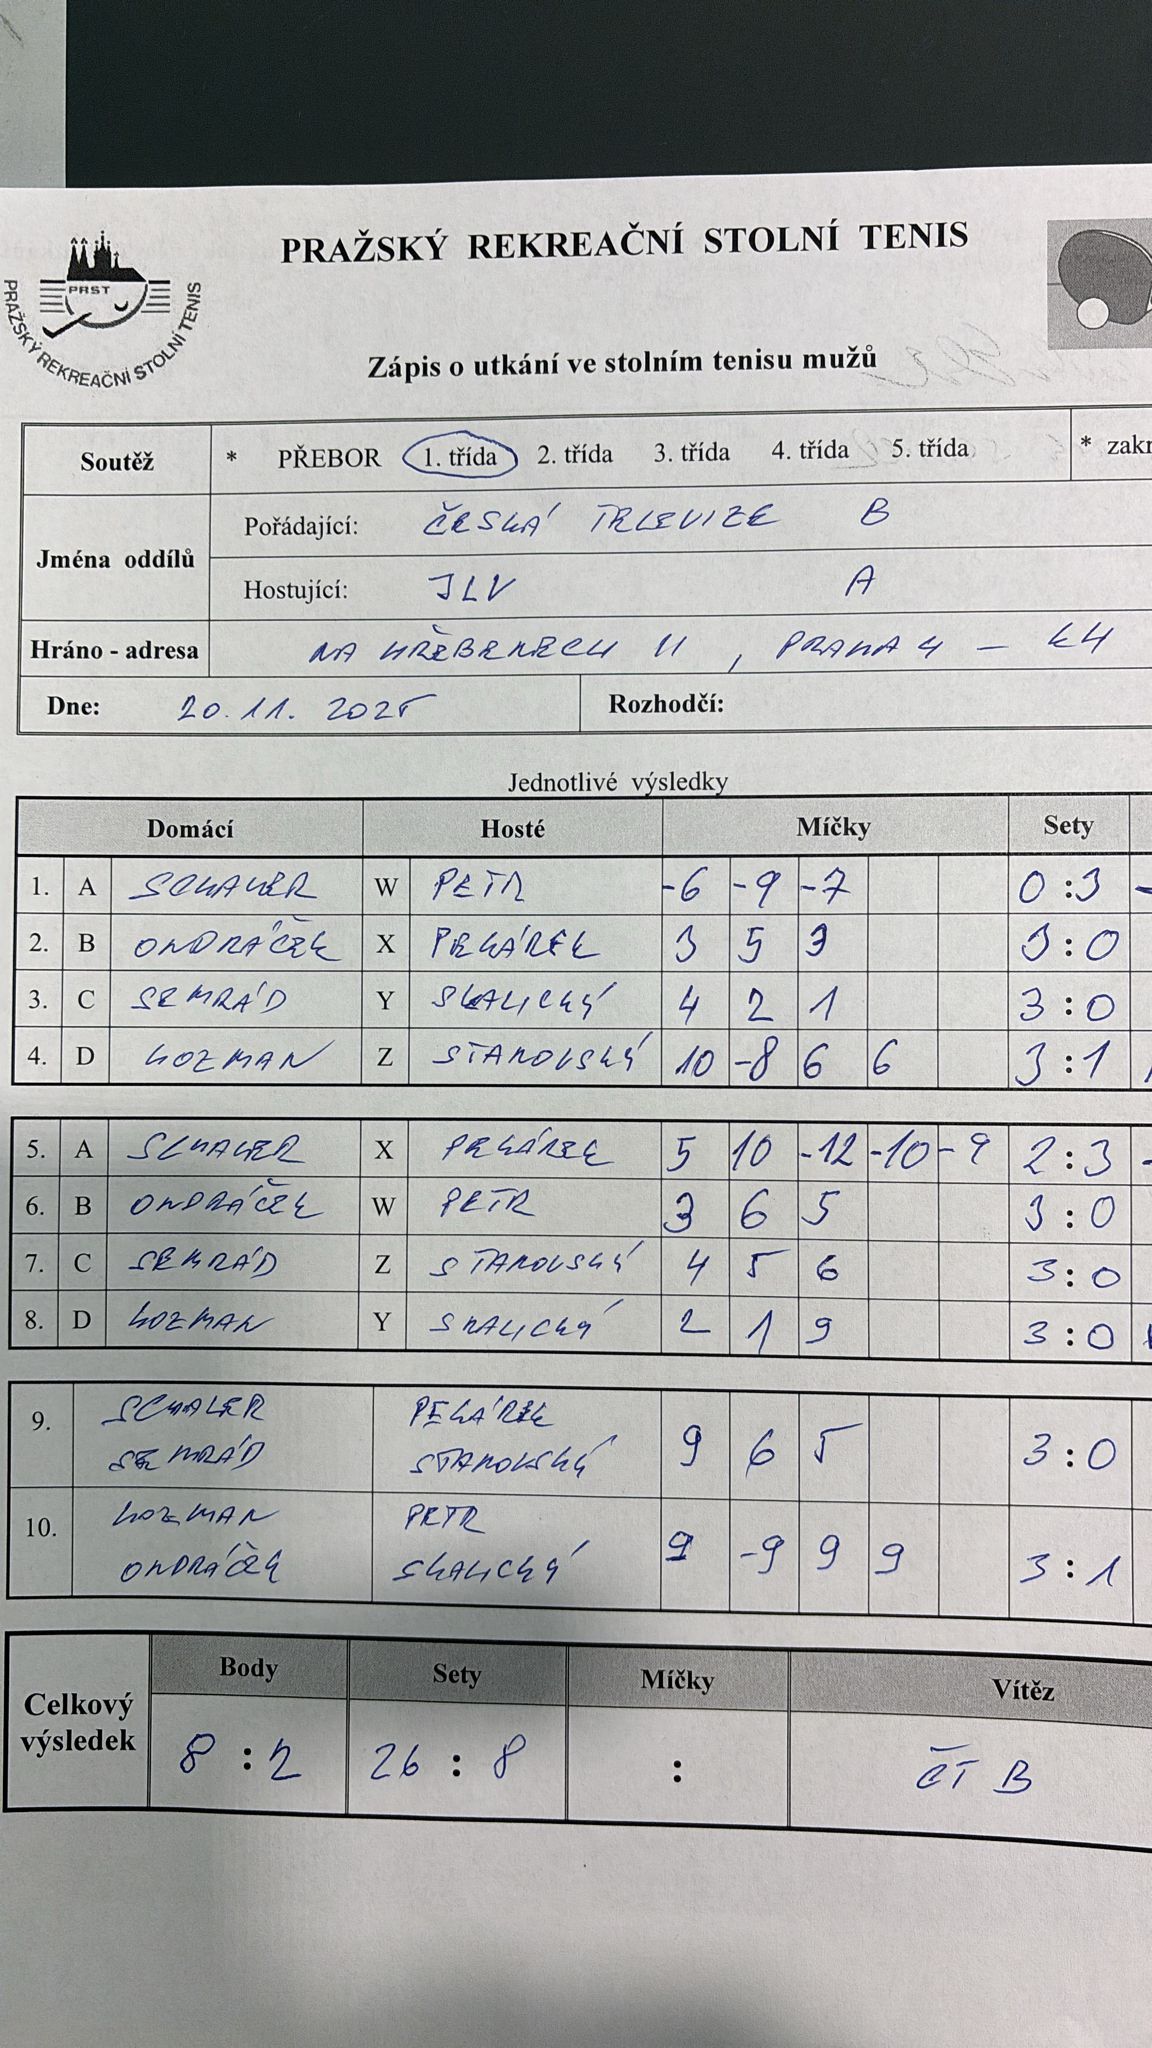 PRAŽSKÝ REKREAČNÍ STOLNÍ TENIS
PRST
PRAŽSKÝ REKREAČNÍ STOLNÍ TENIS
Zápis o utkání ve stolním tenisu mužů
Soutěž * PŘEBOR 1. třída 2. třída 3. třída 4. třída 5. třída * zakr
Jména oddílů
Pořádající: ČESKÁ TELEVIZE B
Hostující: JLV A
Hráno - adresa NA HŘEBENECH II, PRAHA 4 - K4
Dne: 20.11. 2025 Rozhodčí:
Jednotlivé výsledky
Domácí Hosté Míčky Sety
1. A SCHALER W PETR -6 -9 -7 0 : 3
2. B ONDRÁČEK X PEKÁREK 3 5 3 3 : 0
3. C SEMRÁD Y SKALICKÝ 4 2 1 3 : 0
4. D KOZMAN Z STANOVSKÝ 10 -8 6 6 3 : 1
5. A SCHALER X PEKÁREK 5 10 -12 -10 -9 2 : 3
6. B ONDRÁČEK W PETR 3 6 5 3 : 0
7. C SEMRÁD Z STANOVSKÝ 4 5 6 3 : 0
8. D KOZMAN Y SKALICKÝ 2 1 9 3 : 0
9. SCHALER PEKÁREK 9 6 5 3 : 0
SEMRÁD STANOVSKÝ
10. KOZMAN PETR 9 -9 9 9 3 : 1
ONDRÁČEK SKALICKÝ
Celkový výsledek
Body Sety Míčky Vítěz
8 : 2 26 : 8 : ČT B